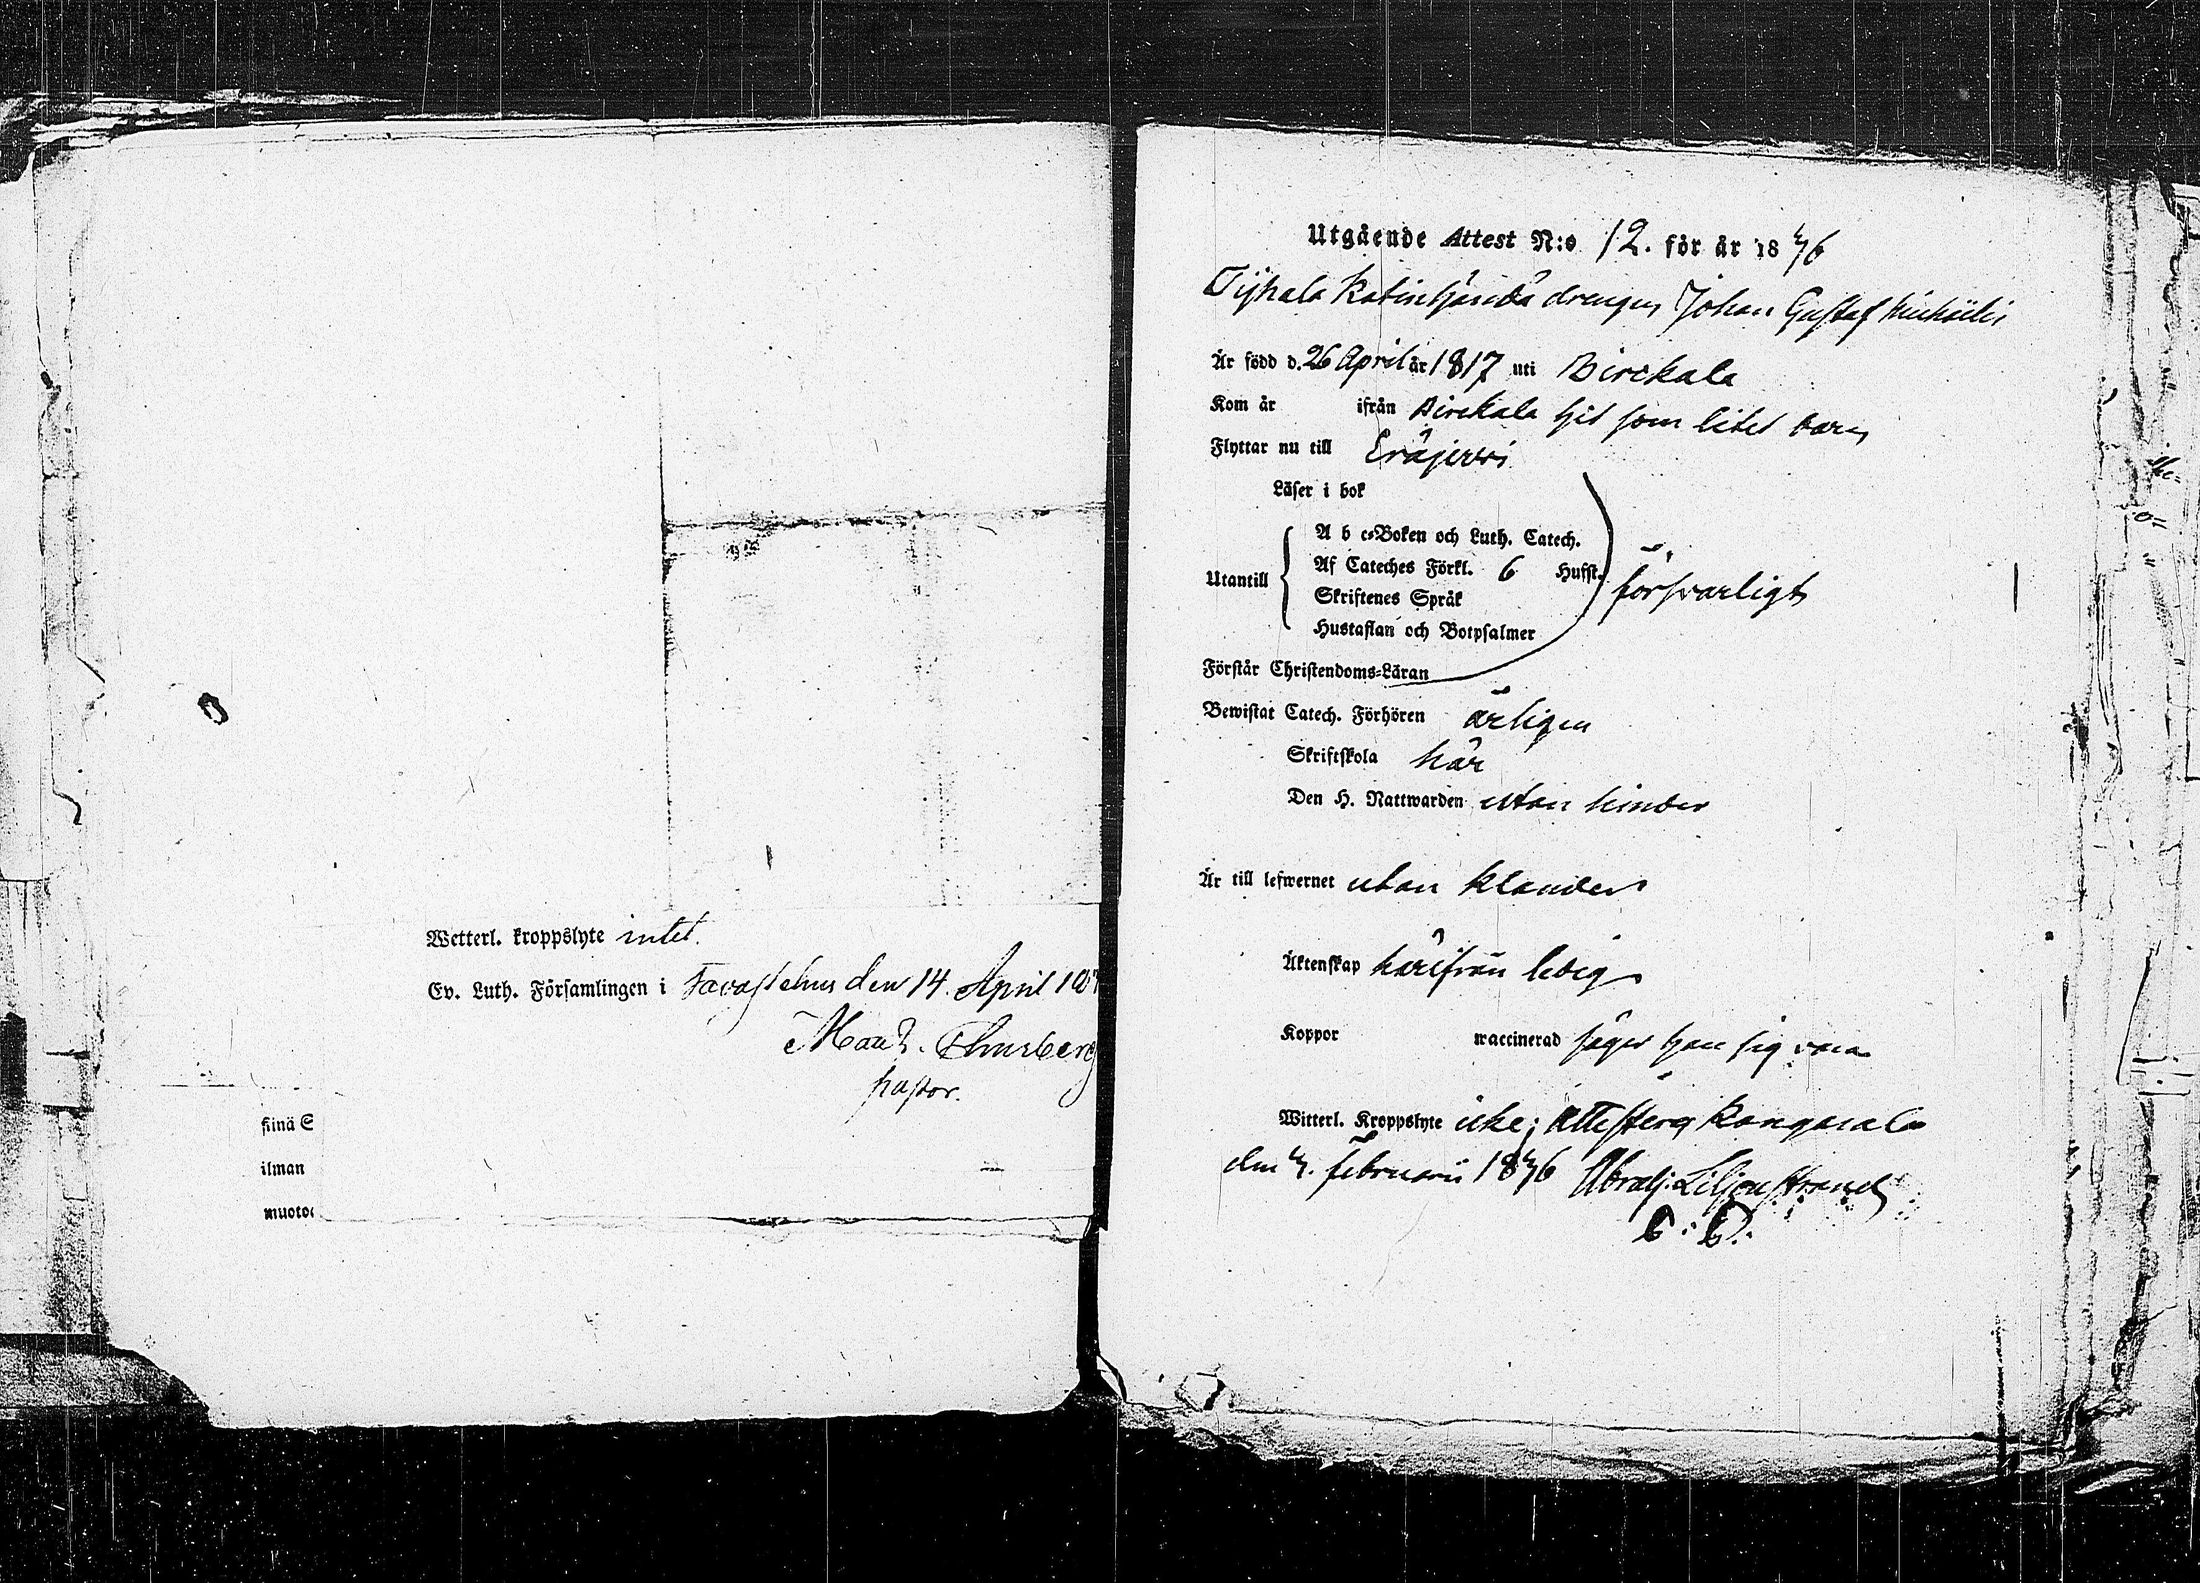 Wetterl. kroppslyte intet.
Ev. Luth. Församlingen i Tavastehus den 14. April 18
pastor.
sinä S
ilman
muoto
Utgående Attest N:o 12. för år 1846
drengen Johan Gustaf Michäelis
Är född d. 26 April år 1817 uti Birckala
Kom år ifrån Birckala hit som litet barn
Flyttar nu till Eräjerwi
Läser i bok
A b c-Boken och Luth. Catech.
Af Cateches Förkl. 6 Hufst.
Utantill försvarligt
Skriftenes Språk
Hustaflan och Botpsalmer
Förstår Christendoms-Läran
Bewistat Catech. Förhören årligen
Skriftskola här
Den H. Nattwarden utan hinder
Är till lefwernet utan klander
Äktenskap härifrån ledig
Koppor waccinerad säger han sig vara
Witterl. Kroppslyte icke; attesterar Kangasala
den 4. februarii 1846 Abrah. Liljenstrand